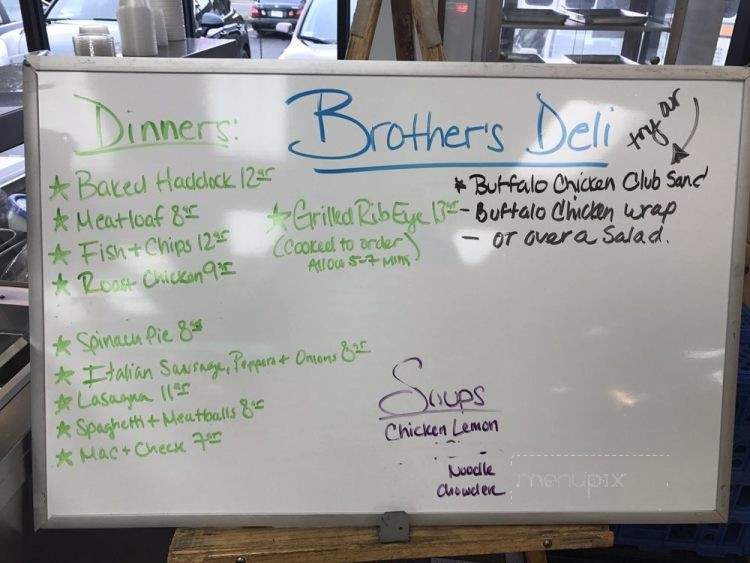 Dinners:
Brother's Deli
try our
★ Baked Haddock 12.95
★ Meatloaf 8.95
★ Fish + Chips 12.95
★ Roast Chicken 9.95
★ Grilled Rib Eye 13.95
(Cooked to order)
Allow 5-7 mins
* Buffalo Chicken Club Sand
- Buffalo Chicken wrap
- or over a Salad.
★ Spinach Pie 8.95
★ Italian Sausage, Peppers + Onions 8.95
★ Lasagna 11.95
★ Spaghetti + Meatballs 8.95
★ Mac + Cheese 7.95
Soups
Chicken Lemon
Noodle
Chowder
menupix